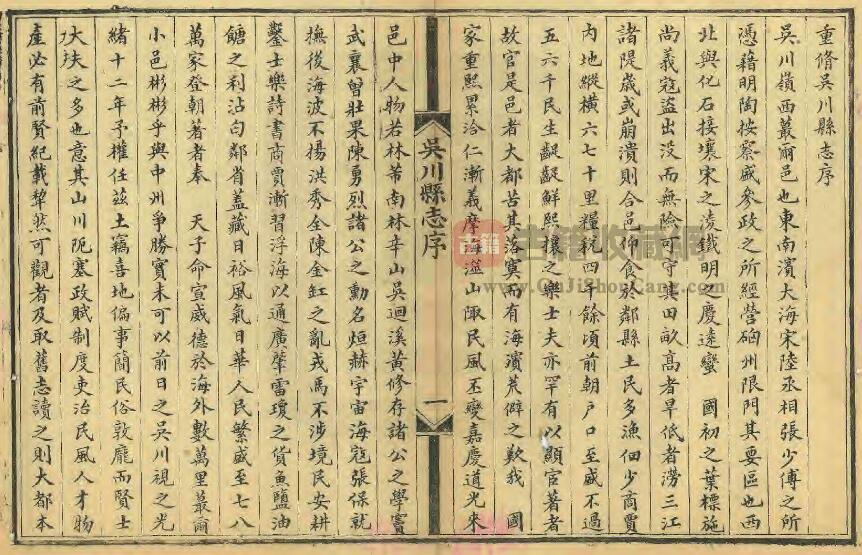 重脩吳川縣志序
吳川嶺西蕞爾邑也東南濱大海宋陸丞相張少傅之所
憑藉明陶按察戚參政之所經營硇州限門其要區也西
北與化石接壤宋之淩鐵明之慶遠蠻　國初之葉標施
尚義寇盜出没而無險可守其田畝高者旱低者澇三江
諸隄歲或崩潰則合邑仰食於鄰縣土民多漁佃少商賈
内地縱横六七十里糧稅四千餘頃前朝户口至盛不過
五六千民生齪齪鮮熙穰之樂士夫亦罕有以顯宦著者
故官是邑者大都苦其落寞而有海濱荒僻之歎我　國
家重熙累洽仁漸義摩海澨山陬民風丕變嘉慶道光來
吳川縣志序
一
邑中人物若林芾南林辛山吳迴溪黃修存諸公之學竇
武襄曾壯果陳勇烈諸公之勳名烜赫宇宙海寇張保就
撫後海波不揚洪秀全陳金缸之亂戎馬不涉境民安耕
鑿士樂詩書商賈漸習浮海以通廣肇雷瓊之貨魚鹽油
餹之利沾匄鄰省蓋藏日裕風氣日華人民繁盛至七八
萬家登朝著者奉　天子命宣威德於海外數萬里蕞爾
小邑彬彬乎與中州爭勝實未可以前日之吳川視之光
緒十二年予權任兹土竊喜地偏事簡民俗敦龐而賢士
大夫之多也意其山川阨塞政賦制度吏治民風人才物
產必有前賢紀載犂然可觀者及取舊志讀之則大都本
古籍
古籍收藏網
www.GuJiShouCang.com